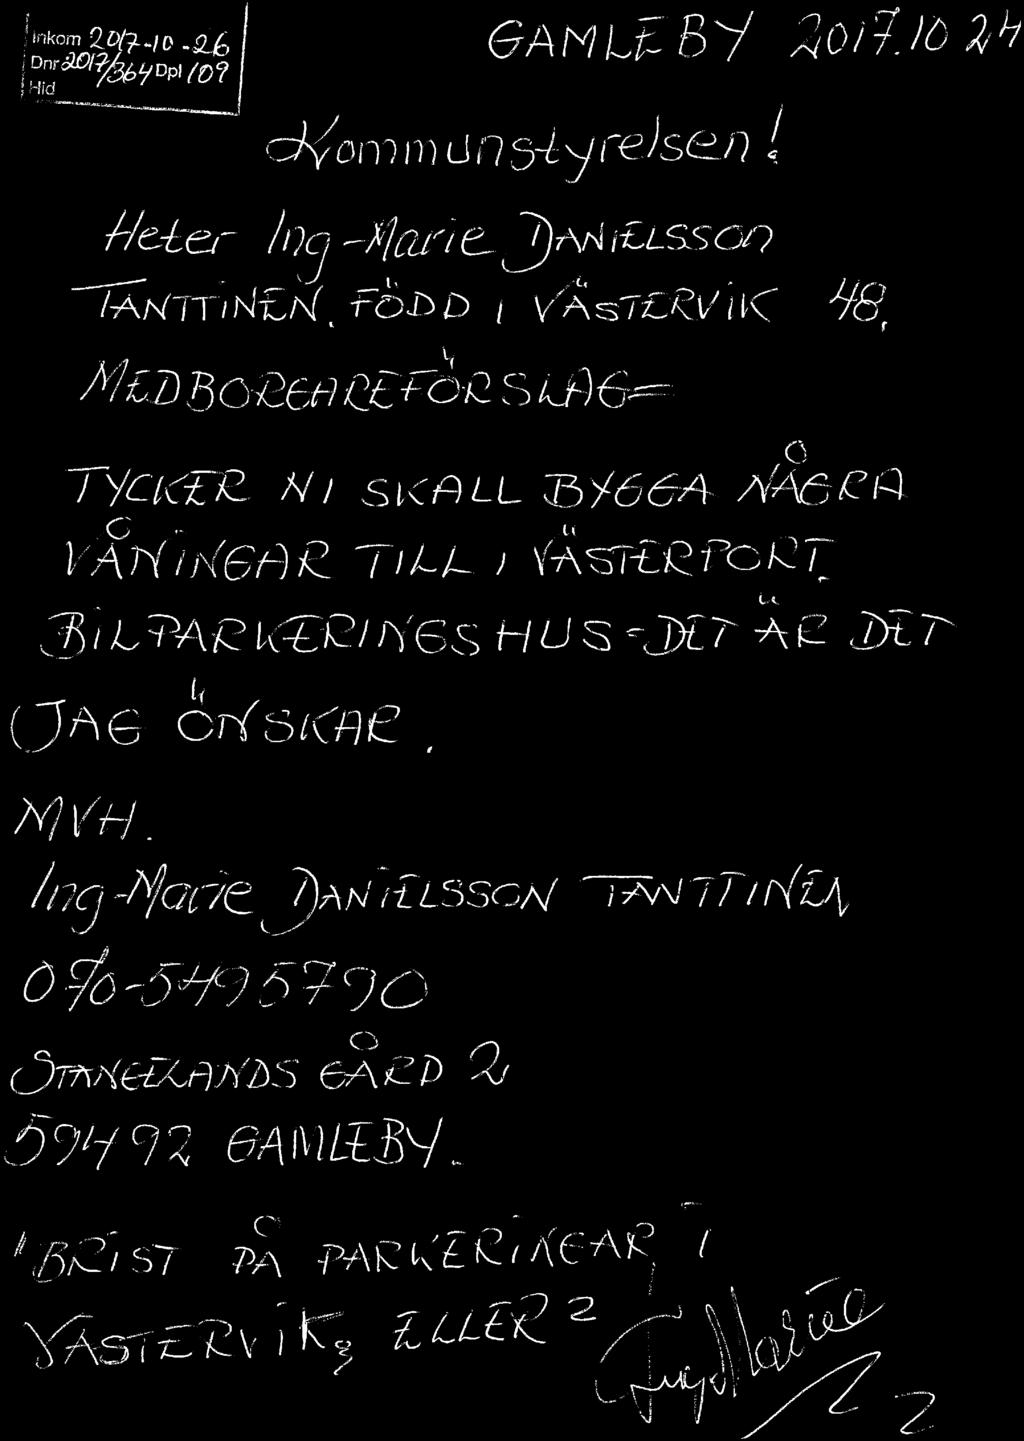 Inkom 2017-10-26
Dnr 2017/364 Dpl 109
Hid
GAMLEBY 2017.10 24
Kommunstyrelsen!
Heter Ing-Marie DANIELSSON
TANTTINEN. FÖDD I VÄSTERVIK 48.
MEDBORGAREFÖRSLAG=
TYCKER NI SKALL BYGGA NÅGRA
VÅNINGAR TILL I VÄSTERPORT.
BILPARKERINGSHUS=DET ÄR DET
JAG ÖNSKAR.
MVH.
Ing-Marie DANIELSSON TANTTINEN
070-5495790
STÄNGELANDS GÅRD 2
594 92 GAMLEBY.
"BRIST PÅ PARKERINGAR I
VÄSTERVIK, ELLER?
Ing-Marie